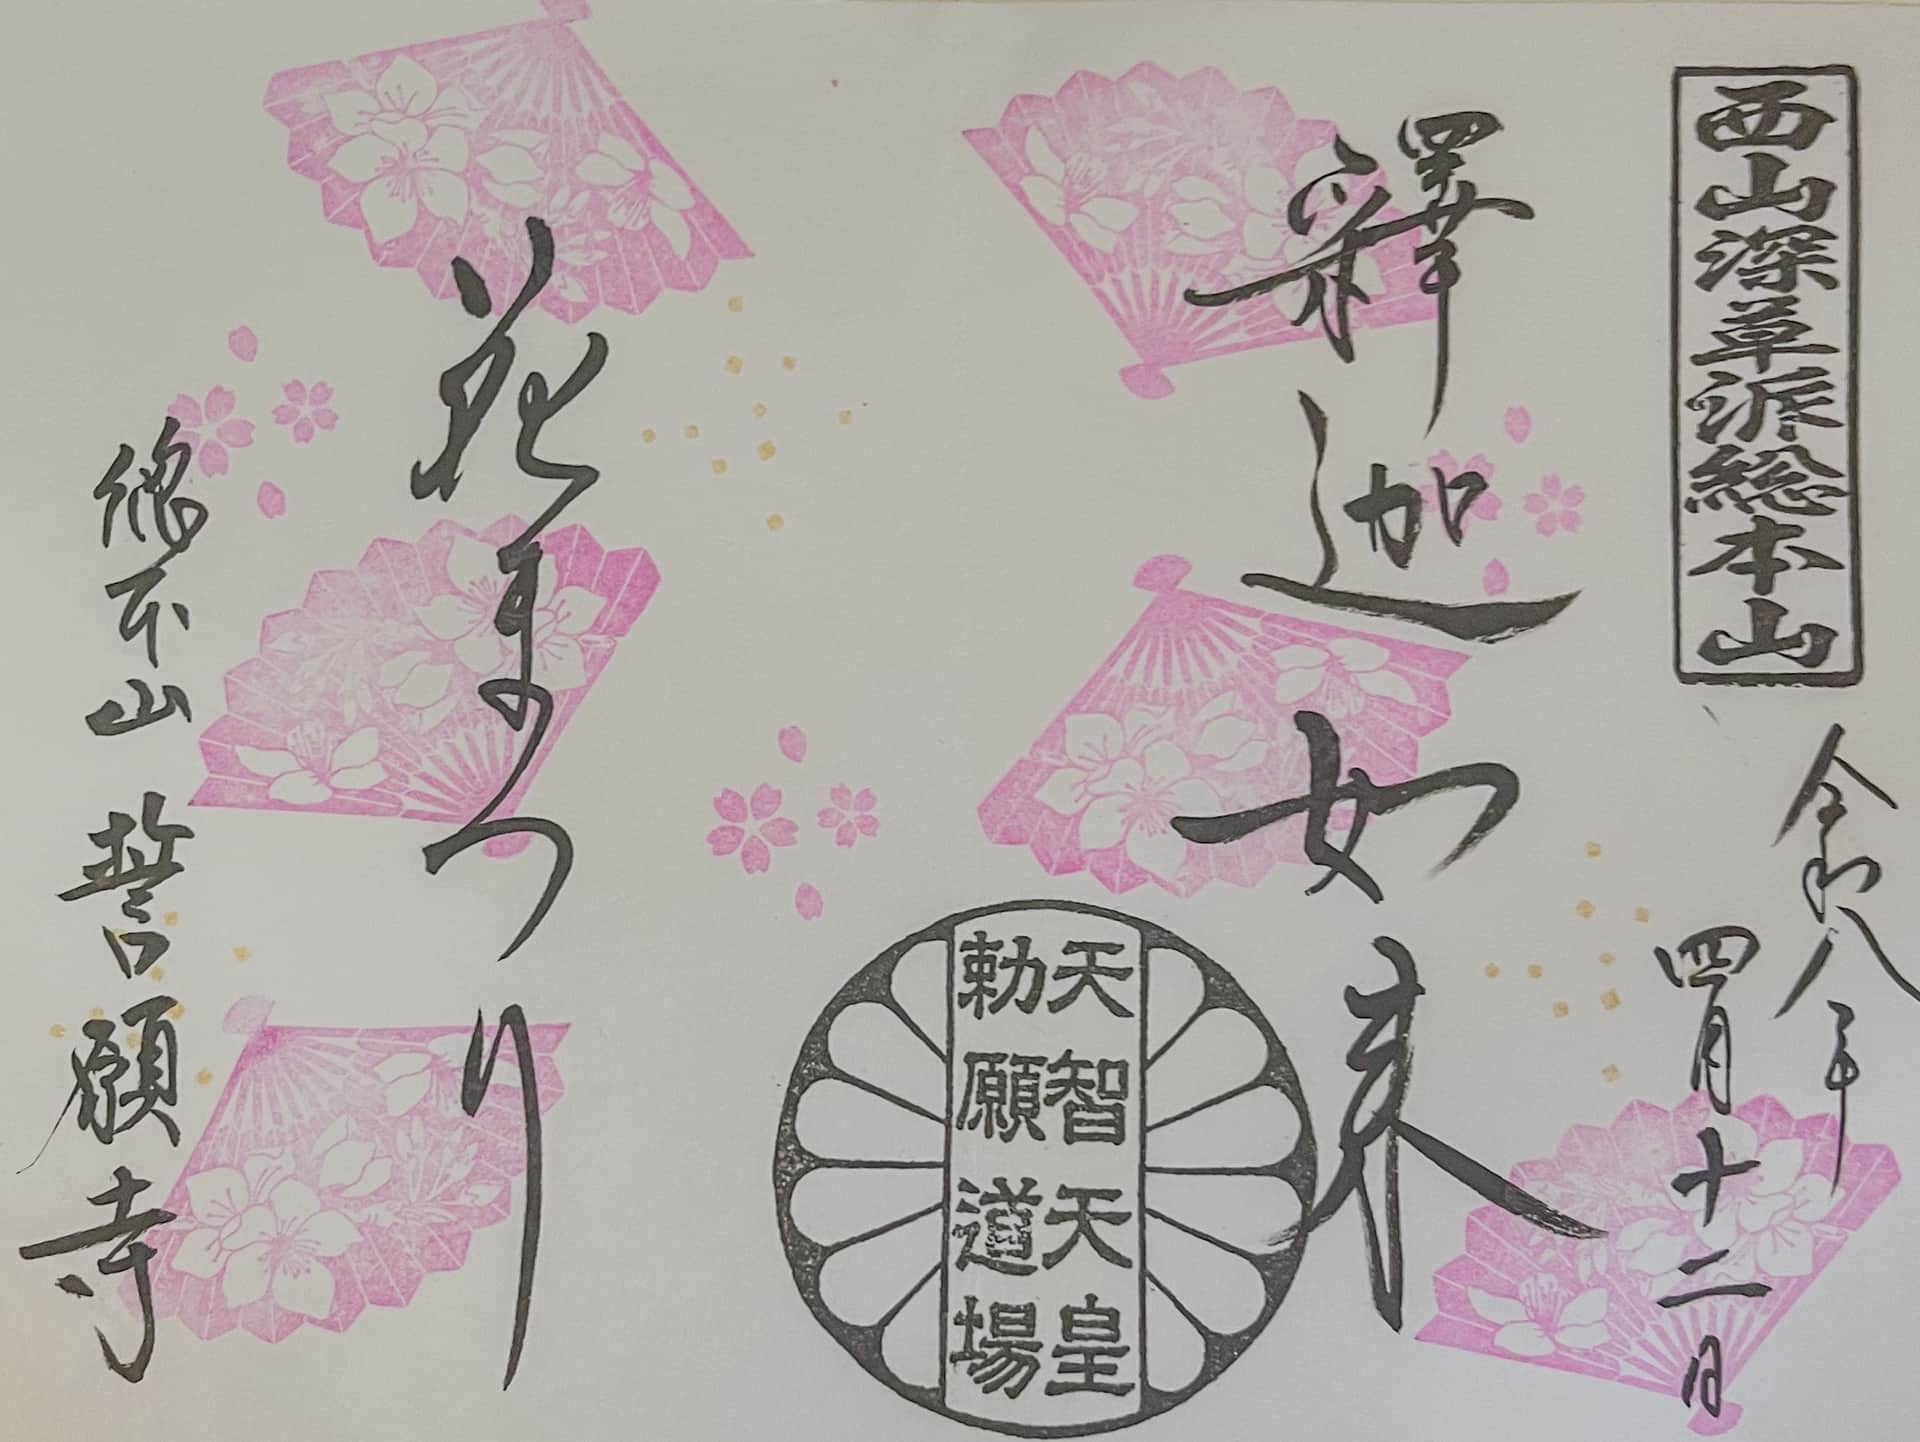 西山深草派総本山
令和八年
四月十二日
釋迦如来
天智天皇
勅願道場
花まつり
總本山 誓願寺